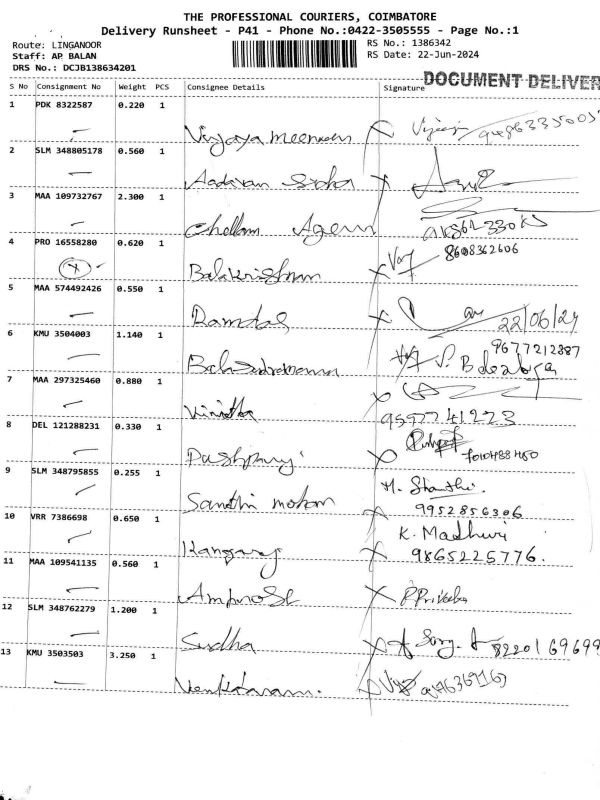 THE PROFESSIONAL COURIERS, COIMBATORE
Delivery Runsheet - P41 - Phone No.:0422-3505555 - Page No.:1
Route: LINGANOOR
RS No.: 1386342
Staff: AP BALAN
RS Date: 22-Jun-2024
DRS No.: DCJB138634201
DOCUMENT DELIVER
S No Consignment No Weight PCS Consignee Details Signature
1 PDK 8322587 0.220 1
Vijaya meenaan
2 SLM 348805178 0.560 1
Aadavan
3 MAA 109732767 2.300 1
Chellam Agency
4 PRO 16558280 0.620 1
8608362606
Balakrishnan
5 MAA 574492426 0.550 1
Ramdas
22/06/24
6 KMU 3504003 1.140 1
9677212887
Balasubramanian
7 MAA 297325460 0.880 1
Vinitha
9597741223
8 DEL 121288231 0.330 1
Pushparaj
9 SLM 348795855 0.255 1
M. Shanthi
Santhi mohan
9952856306
10 VRR 7386698 0.650 1
K. Madhuri
Kangaraj
9865225776.
11 MAA 109541135 0.560 1
Ambrose
12 SLM 348762279 1.200 1
Sudha
8220169699
13 KMU 3503503 3.250 1
Venkataram.